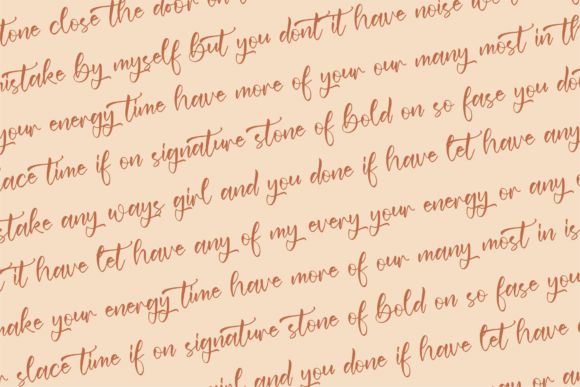 tone close the door on
mistake by myself But you dont it have noise
your energy time have more of your our many most in th
slace time if on signature stone of Bold on so fase you do
stake any ways girl and you done if have let have any
it have let have any of my every your energy or any
make your energy time have more of our many most in is
slace time if on signature stone of Bold on so fase you
girl and you done if have let have
may or a